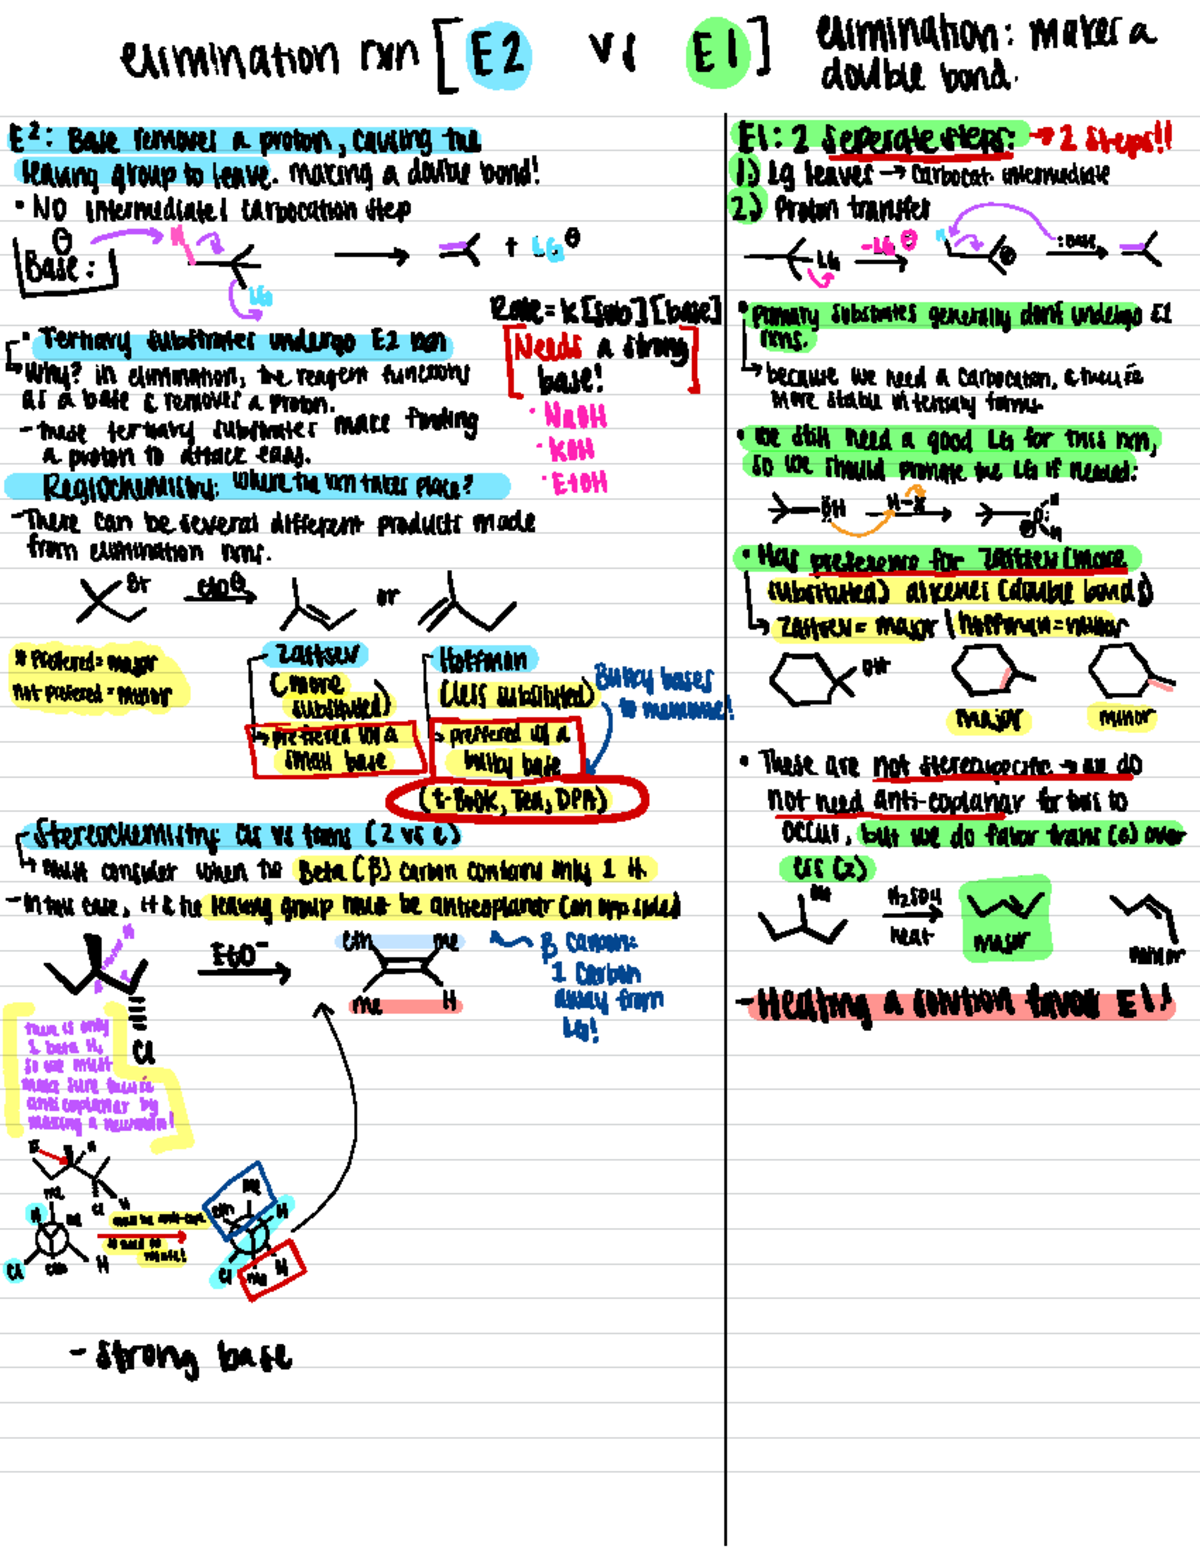 elimination rxn [E2 vs E1]
elimination: makes a
double bond.
E²: Base removes a proton, causing the
leaving group to leave. making a double bond!
• NO intermediate/carbocation step
⊖
Base:
H
LG
+ LG⊖
Rate = k[sub][base]
Needs a strong
base!
• NaOH
• KOH
• EtOH
• Tertiary substrates undergo E2 rxn
↳ Why? in elimination, the reagent functions
as a base & removes a proton.
- these tertiary substrates make finding
a proton to attack easy.
Regiochemistry: where the rxn takes place?
- There can be several different products made
from elimination rxns.
Br
EtO⊖
or
* Preferred = major
not prefered = minor
Zaitsev
(more
substituted)
↳ preferred w/ a
small base
Hoffman
(less substituted)
↳ preffered w/ a
bulky base
(t-BuOK, Tea, DPA)
Bulky bases
to memorize!
- Stereochemistry: cis vs trans (Z vs E)
↳ Must consider when the Beta (β) carbon contains only 1 H.
- In this case, H & the leaving group must be anticoplanar (on opp sides)
H
Cl
EtO⁻
eth
me
me
H
β Carbon:
1 Carbon
away from
LG!
there is only
1 beta H,
so we must
make sure there is
anti coplanar by
making a newman!
H
Cl
H
me
H
me
Cl
eth
H
must be anti-cop.
so need to
rotate!
me
eth
H
Cl
me
H
- Strong base
E1: 2 seperate steps: → 2 steps!!
1) LG leaves → carbocat. intermediate
2) Proton transfer
LG
-LG⊖
H
⊕
:Base
• primary substrates generally don't undergo E1
rxns.
↳ because we need a carbocation, & they're
more stable in tertiary forms.
• We still need a good LG for this rxn,
so we should promote the LG if needed:
ÖH
H-X
O
H
H
⊕
• Has preference for Zaitsev (more
substituted) alkenes (double bonds)
↳ Zaitsev = major | Hoffman = minor
OH
major
minor
• These are not stereospecific → all do
not need anti-coplanar for this to
occur, but we do favor trans (E) over
cis (Z)
OH
H₂SO4
heat
major
minor
- Heating a solution favors E1!